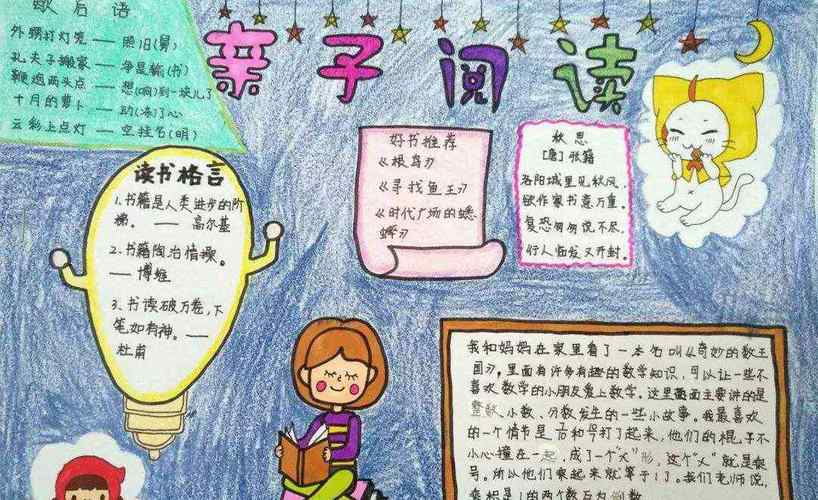 歇后语
外甥打灯笼 —— 照旧(舅)
孔夫子搬家 —— 净是输(书)
鞭炮两头点 —— 想(响)到一块儿了
十月的萝卜 —— 动(冻)了心
云彩上点灯 —— 空挂名(明)
亲子阅读
读书格言
1.书籍是人类进步的阶
梯。—— 高尔基
2.书籍陶冶情操。
—— 博
3.书读破万卷,下
笔如有神。——
杜甫
好书推荐
《根鸟》
《寻找鱼王》
《时代广场的蟋
蟀》
秋思
[唐]张籍
洛阳城里见秋风,
欲作家书意万重。
复恐匆匆说不尽,
行人临发又开封。
我和妈妈在家里看了一本名叫《奇妙的数王
国》,里面有许多有趣的数学知识,可以让一些不
喜欢数学的小朋友爱上数学。这里面主要讲的是
整数、小数、分数发生的一些小故事。我最喜欢
的一个情节是 和 打了起来,他们的棍子不
小心撞在一起,成了个"×"形,这个"×"就是乘
号。所以他们乘起来就等于1了。我们老师说,
乘积是1的两个数互为倒数